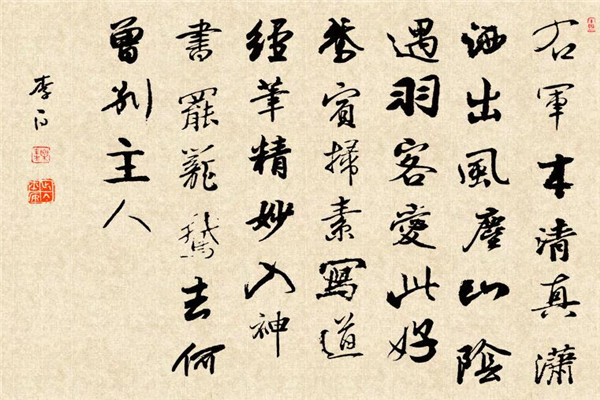 右軍本清真瀟
洒出風塵山陰
遇羽客愛此好
鵞賓掃素寫道
經筆精妙入神
書罷籠鵞去何
曾別主人
李白